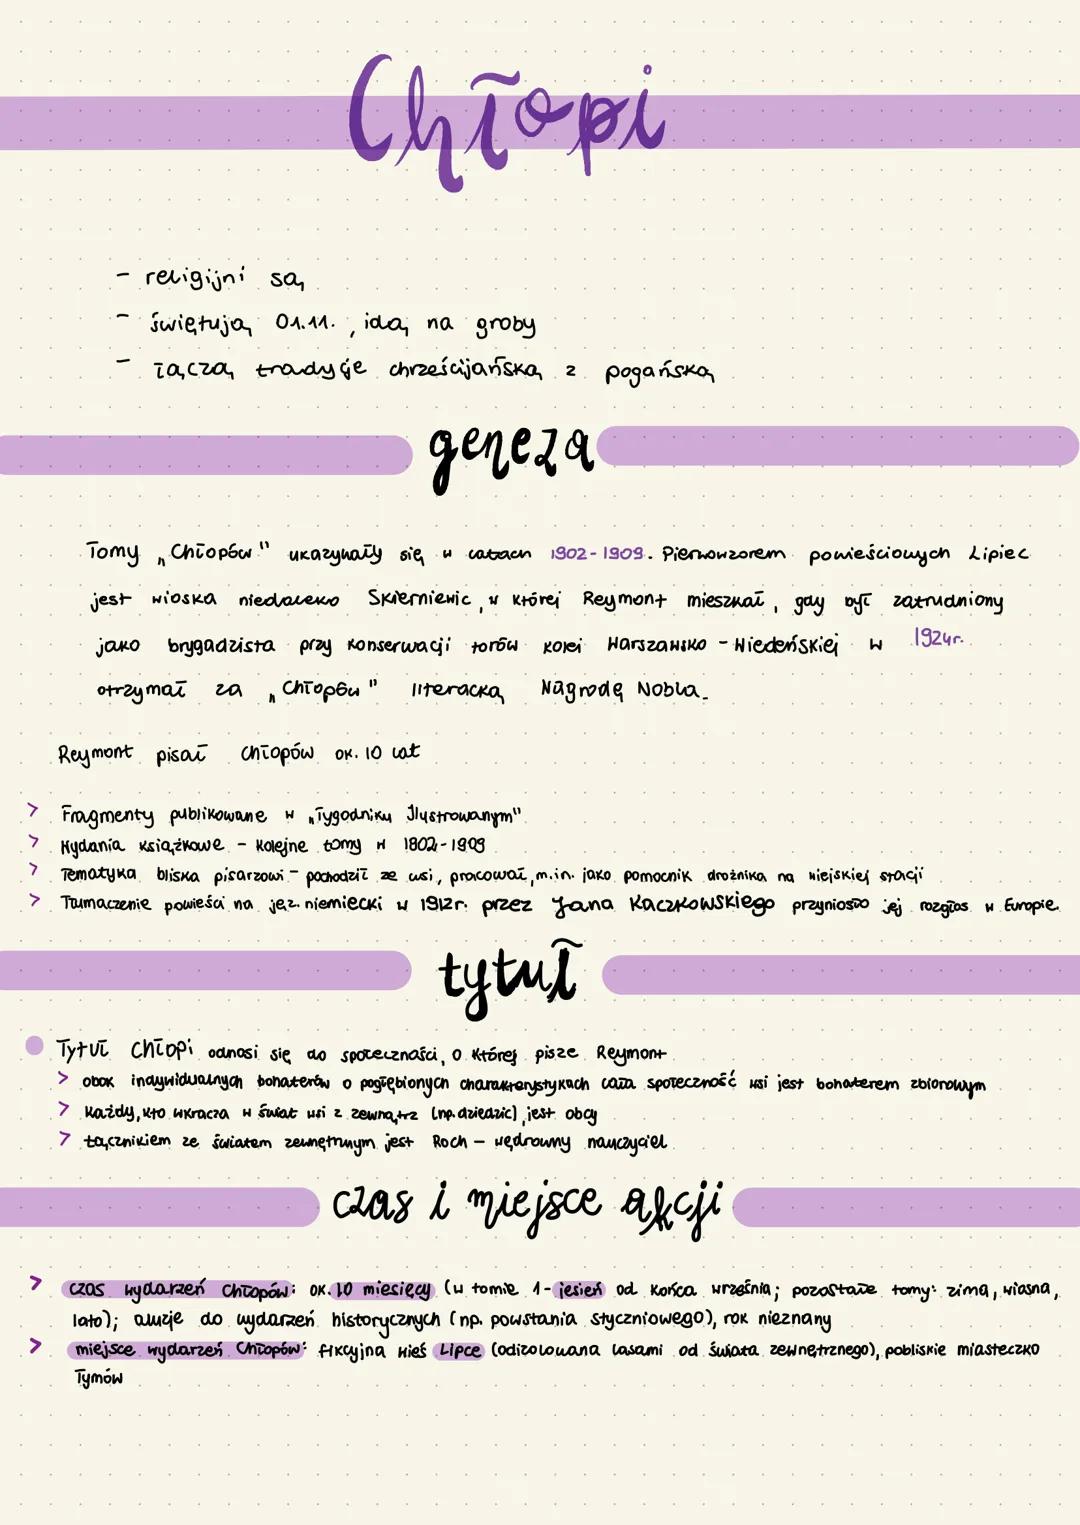 Chłopi
- religijni są
- świętują 01.11., idą na groby
- łączą tradycje chrześcijańską z pogańską
geneza
Tomy „Chłopów" ukazywały się w latach 1902-1909. Pierwowzorem powieściowych Lipiec
jest wioska niedaleko Skierniewic, w której Reymont mieszkał, gdy był zatrudniony
jako brygadzista przy konserwacji torów kolei Warszawsko-Wiedeńskiej w 1924r.
otrzymał za „Chłopów" literacką Nagrodę Nobla.
Reymont pisał Chłopów ok. 10 lat
> Fragmenty publikowane w „Tygodniku Ilustrowanym"
> Wydania książkowe - kolejne tomy w 1802-1909
> Tematyka bliska pisarzowi - pochodził ze wsi, pracował, m.in. jako pomocnik dróżnika na wiejskiej stacji
> Tłumaczenie powieści na jęz. niemiecki w 1912r. przez Jana Kaczkowskiego przyniosło jej rozgłos w Europie
tytuł
Tytuł Chłopi odnosi się do społeczności, o której pisze Reymont
> obok indywidualnych bohaterów o pogłębionych charakterystykach cała społeczność wsi jest bohaterem zbiorowym
> każdy, kto wkracza w świat wsi z zewnątrz (np. dziedzic), jest obcy
> łącznikiem ze światem zewnętrznym jest Roch - wędrowny nauczyciel
czas i miejsce akcji
> czas wydarzeń Chłopów: ok. 10 miesięcy (w tomie 1 - jesień od końca września; pozostałe tomy: zima, wiosna,
lato); aluzje do wydarzeń historycznych (np. powstania styczniowego), rok nieznany
> miejsce wydarzeń Chłopów: fikcyjna wieś Lipce (odizolowana lasami od świata zewnętrznego), pobliskie miasteczko
Tymów